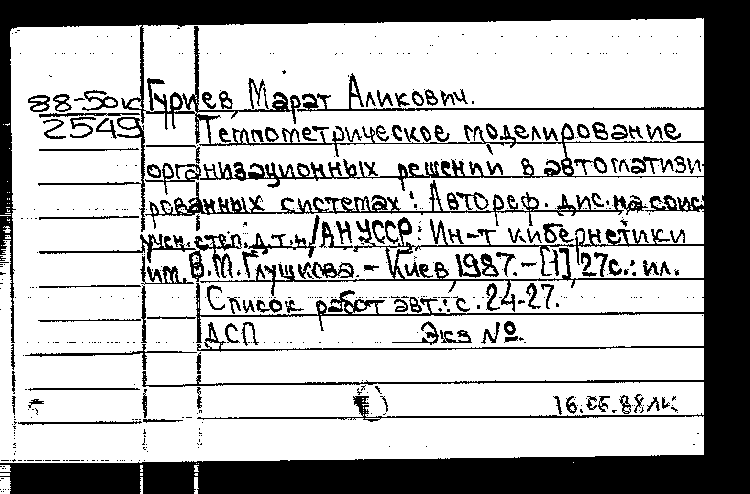 88-50к Гуриев Марат Аликович.
2549 Темпометрическое моделирование
организационных решений в автоматизи-
рованных системах : Автореф. дис. на соиск
учен. степ. д.т.н./АН УССР. Ин-т кибернетики
им. В.М. Глушкова. – Киев, 1987. – [1], 27с.: ил.
Список работ авт.: с. 24-27.
ДСП Экз №.
16.05.88лк